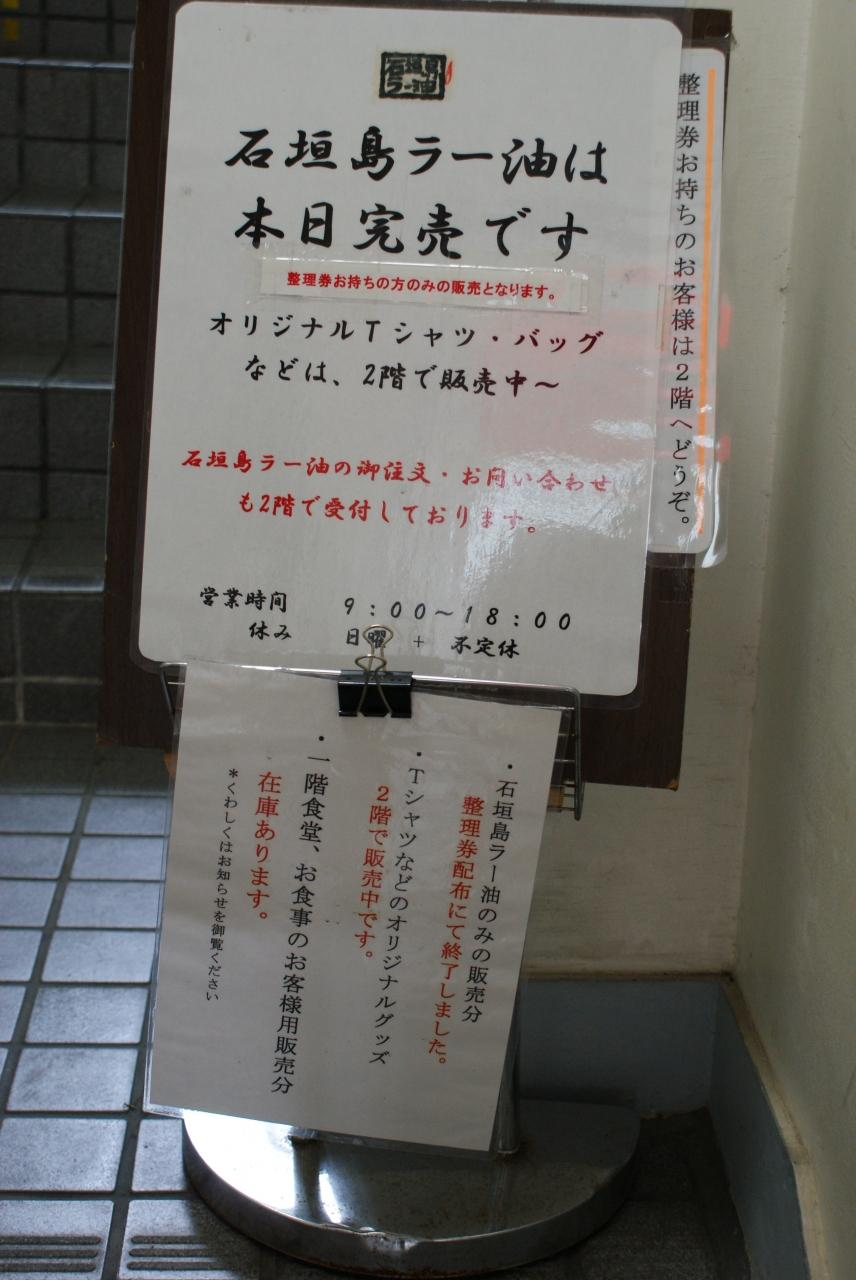 石垣島
ラー油
石垣島ラー油は
本日完売です
整理券お持ちの方のみの販売となります。
オリジナルTシャツ・バッグ
などは、2階で販売中～
石垣島ラー油の御注文・お問い合わせ
も2階で受付しております。
営業時間 9:00～18:00
休み 日曜 + 不定休
整理券お持ちのお客様は2階へどうぞ。
・石垣島ラー油のみの販売分
整理券配布にて終了しました。
・Tシャツなどのオリジナルグッズ
2階で販売中です。
・一階食堂、お食事のお客様用販売分
在庫あります。
*くわしくはお知らせを御覧ください